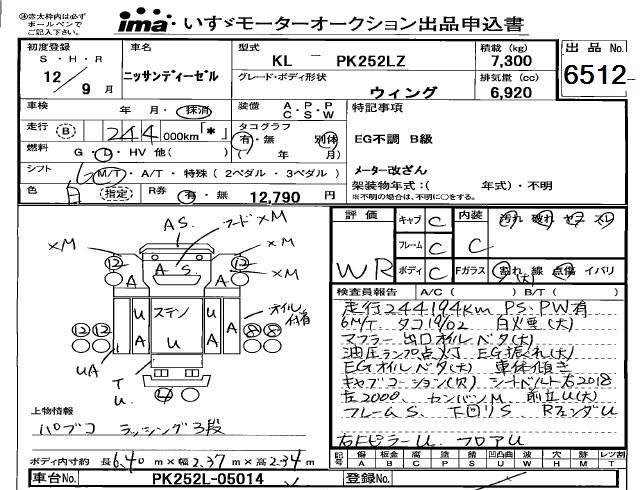 ㊟赤太枠内は必ず
ボールペンで
ご記入下さい。
ima いすゞモーターオークション出品申込書
初度登録 車名 型式 積載 (kg) 出品 No.
S・H・R KL － PK252LZ 7,300
12 / 9 月 ニッサンディーゼル グレード・ボディ形状 排気量 (cc) 6512
ウィング 6,920
車検 年 月・抹消 装備 A・P・P 特記事項
C・S・W
走行 B 244 000km「*」 タコグラフ
有・無 別体 EG不調 B級
燃料 G・L・HV 他( ) ( 年 月)
シフト 6 M/T・A/T・特殊 (2ペダル・3ペダル) メーター改ざん
色 白 指定 R券 有・無 12,790 円 架装物年式:( 年式)・不明
※不明の場合は、不明に○をする。
評価 キャブ C 内装 汚れ 破れ セブ スレ
フレーム C C
WR ボディ C Fガラス 割れ・線 点傷・イバリ
(大)
検査員報告 A/C ( ) B/T ( )
走行244194km PS・PW有
6M/T タコ19/02 白煙(大)
マフラー出口オイルベタ(大)
油圧ランプ点灯 EG振れ(大)
EGオイルベタ(大) 車体傾き
キャブコーション(欠) シートベルト右2018
左2000、カンバンM 前立U(大)
フレームS、下回りS RフェンダU
右FピラーU フロアU
AS フードxM
xM xM
12 A S 12
A A
xM
12 12 U A U ステン U U A 8 8 オイル付着
UA
T
U 4
上物情報
パブコ ラッシング3段
ボディ内寸約 長6.40m×幅2.37m×高2.34m
記号 傷 板金 腐 塗 錆 凹凸曲 波 穴 時 レッツ割
A B C P S U W H M T
車台No. PK252L-05014 登録No.